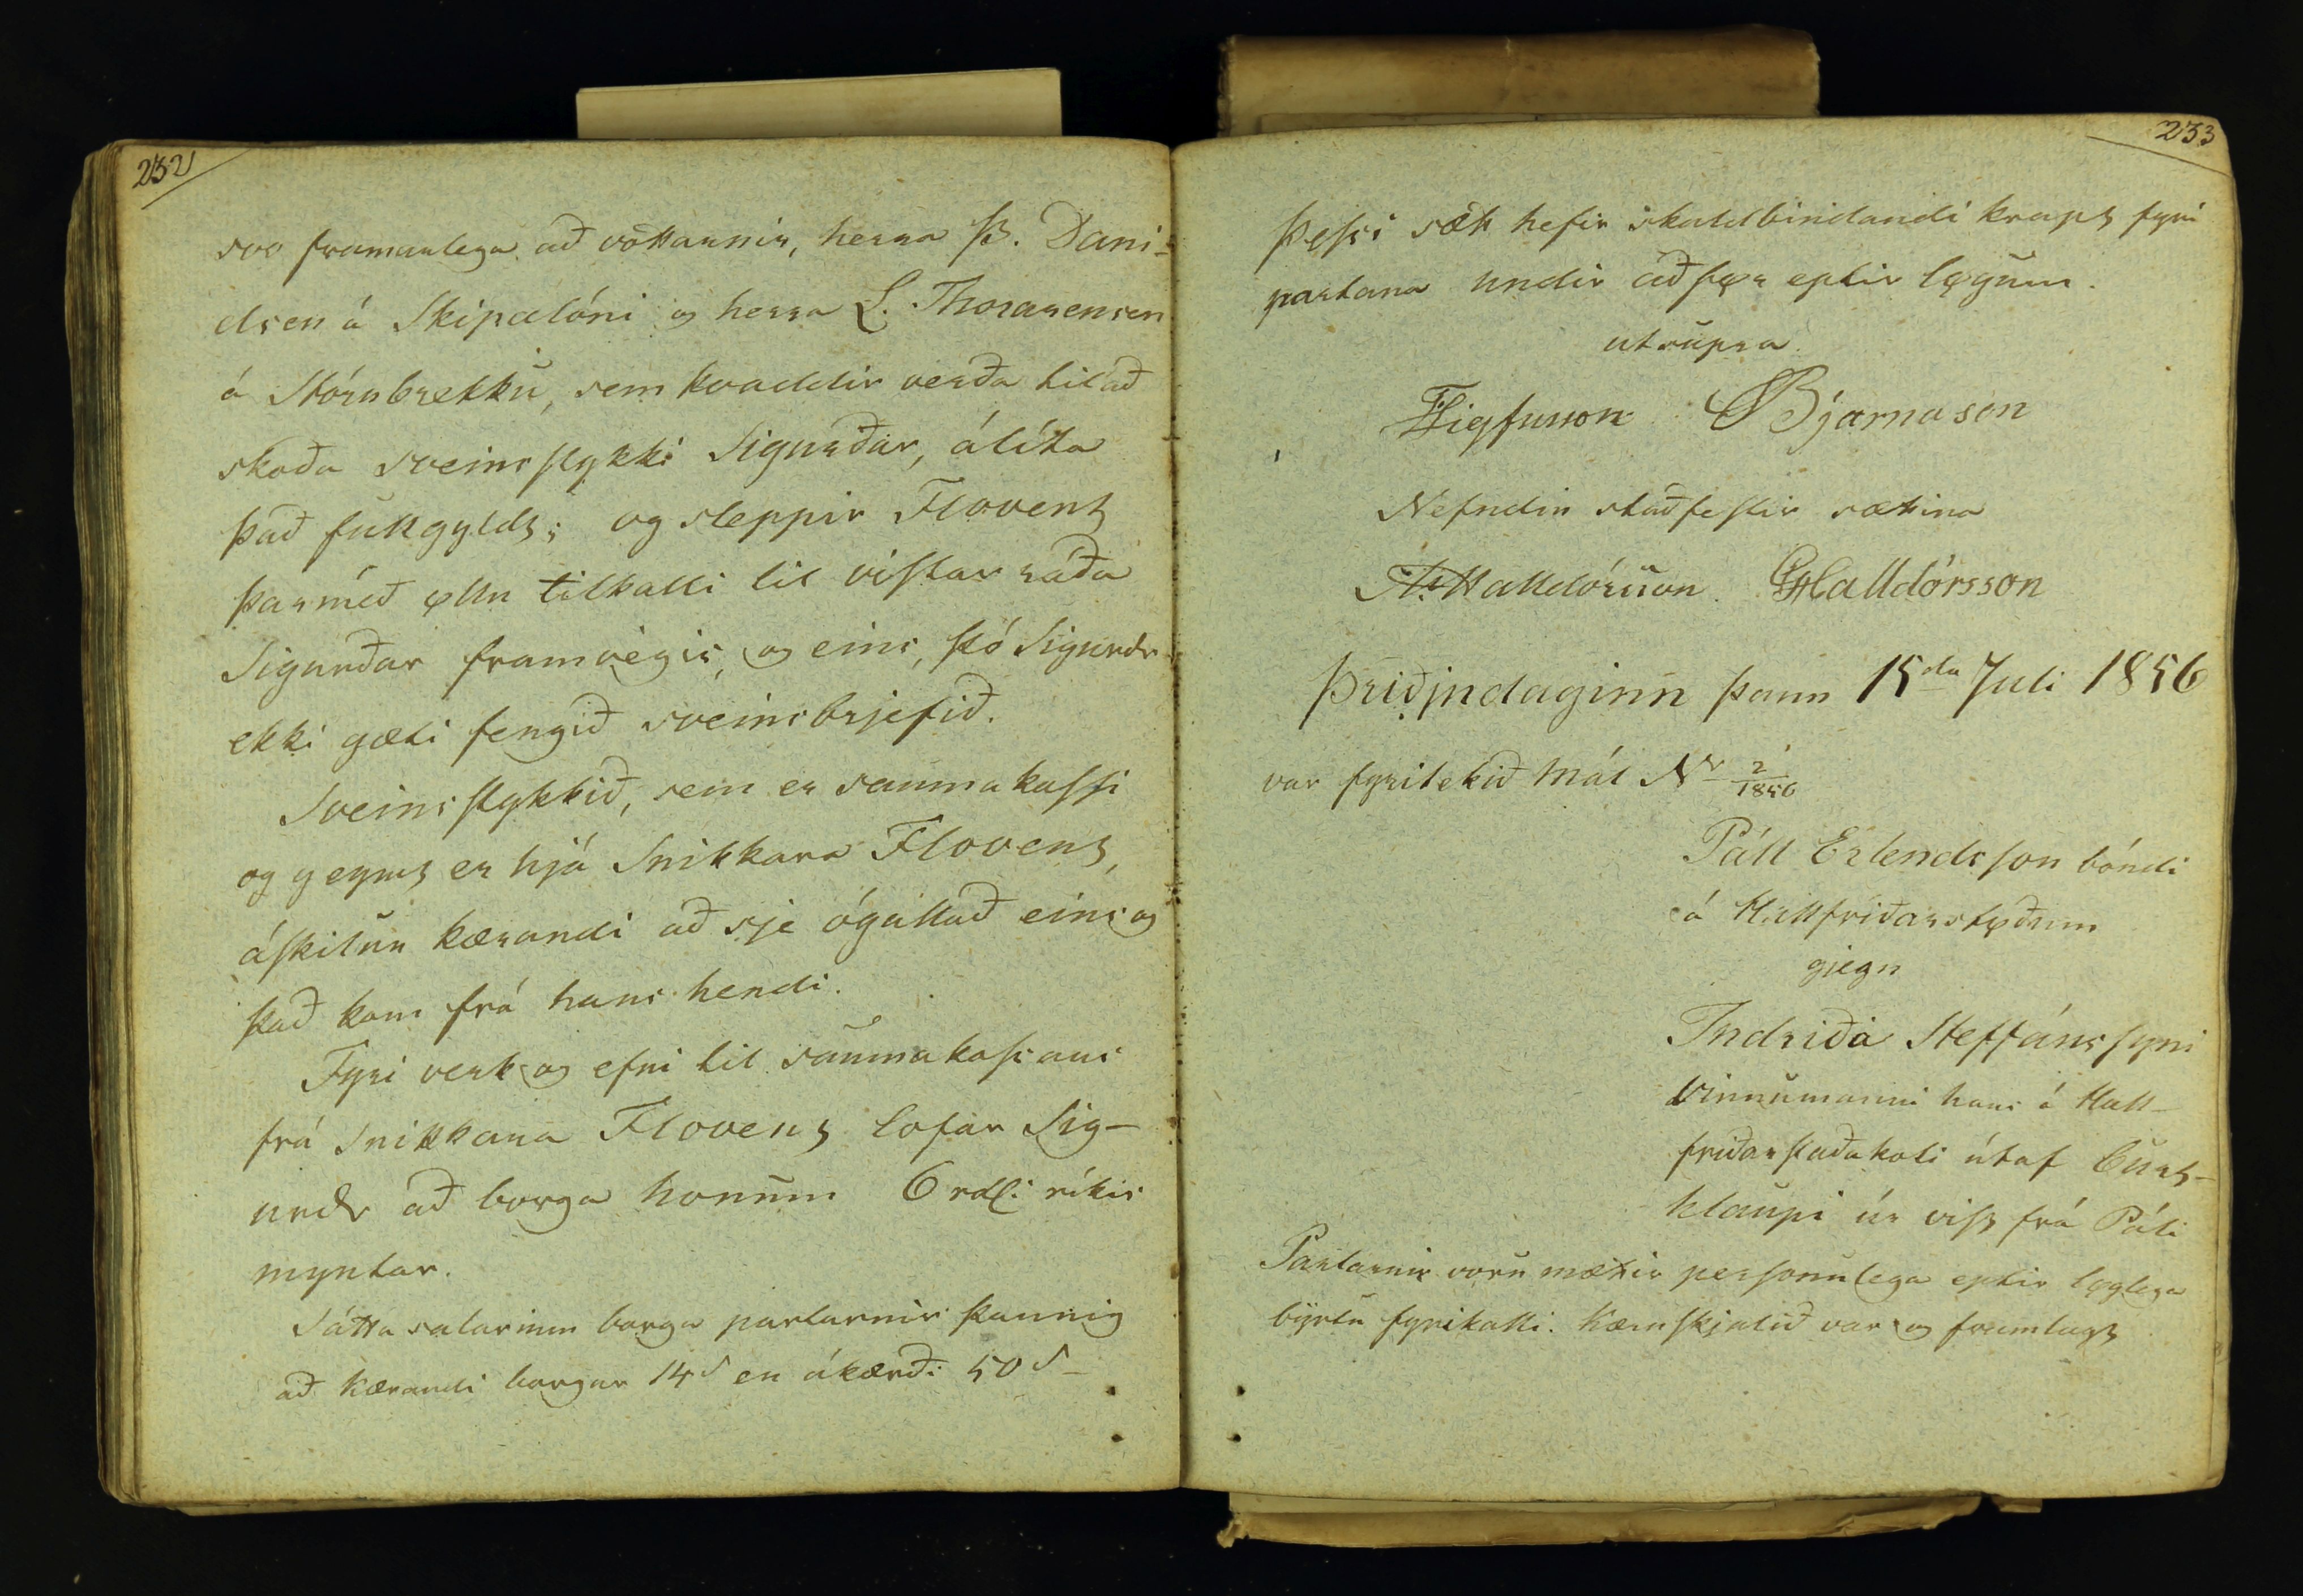 232
svo framarlega að vottarnir, herra Þ. Dani-
elsen á Skipalóni og herra L. Thorarensen
á Stórubrekku, sem kvaddir verða til að
skoða sveinsstykki Sigurðar, álíta
það fullgyldt; og sleppir Flovent
þarmeð øllu tilkalli til vistar ráða
Sigurðar framvegis, og eins, þó Sigurdr
ekki gæti fengið sveinsbrjefið.
Sveinsstykkið, sem er saumakassi
og geymt er hjá Snikkara Flovent,
áskilur kærandi að sje ógallað eins og
það kom frá hans hendi.
Fyri verk og efni til saumakassans
frá Snikkara Flovent lofar Sig-
urdr að borga honum 6 rdl: ríkis
myntar.
Sáttasalarium borga partarnir þannig
að kærandi borgar 14 s en ákærði 50 s -
233
Þessi sætt hefir skuldbindandi krapt fyri
partana undir aðfør eptir løgum.
ut supra
Figfusson Bjarnason
Nefndin staðfestir sættina
Halldórsson GHalldórsson
Þriðjudaginn þann 15da Juli 1856
var fyritekið Mál Nr 2/1856
Páll Erlendsson bóndi
á Hallfríðarstøðum
gjegn
Indriða Steffánssyni
Vinnumanni hans á Hall-
fríðarstaðakoti útaf burt-
hlaupi úr vist frá Páli
Partarnir voru mættir persónulega eptir løglega
byrtu fyrikalli. Kæruskjalið var og framlagt